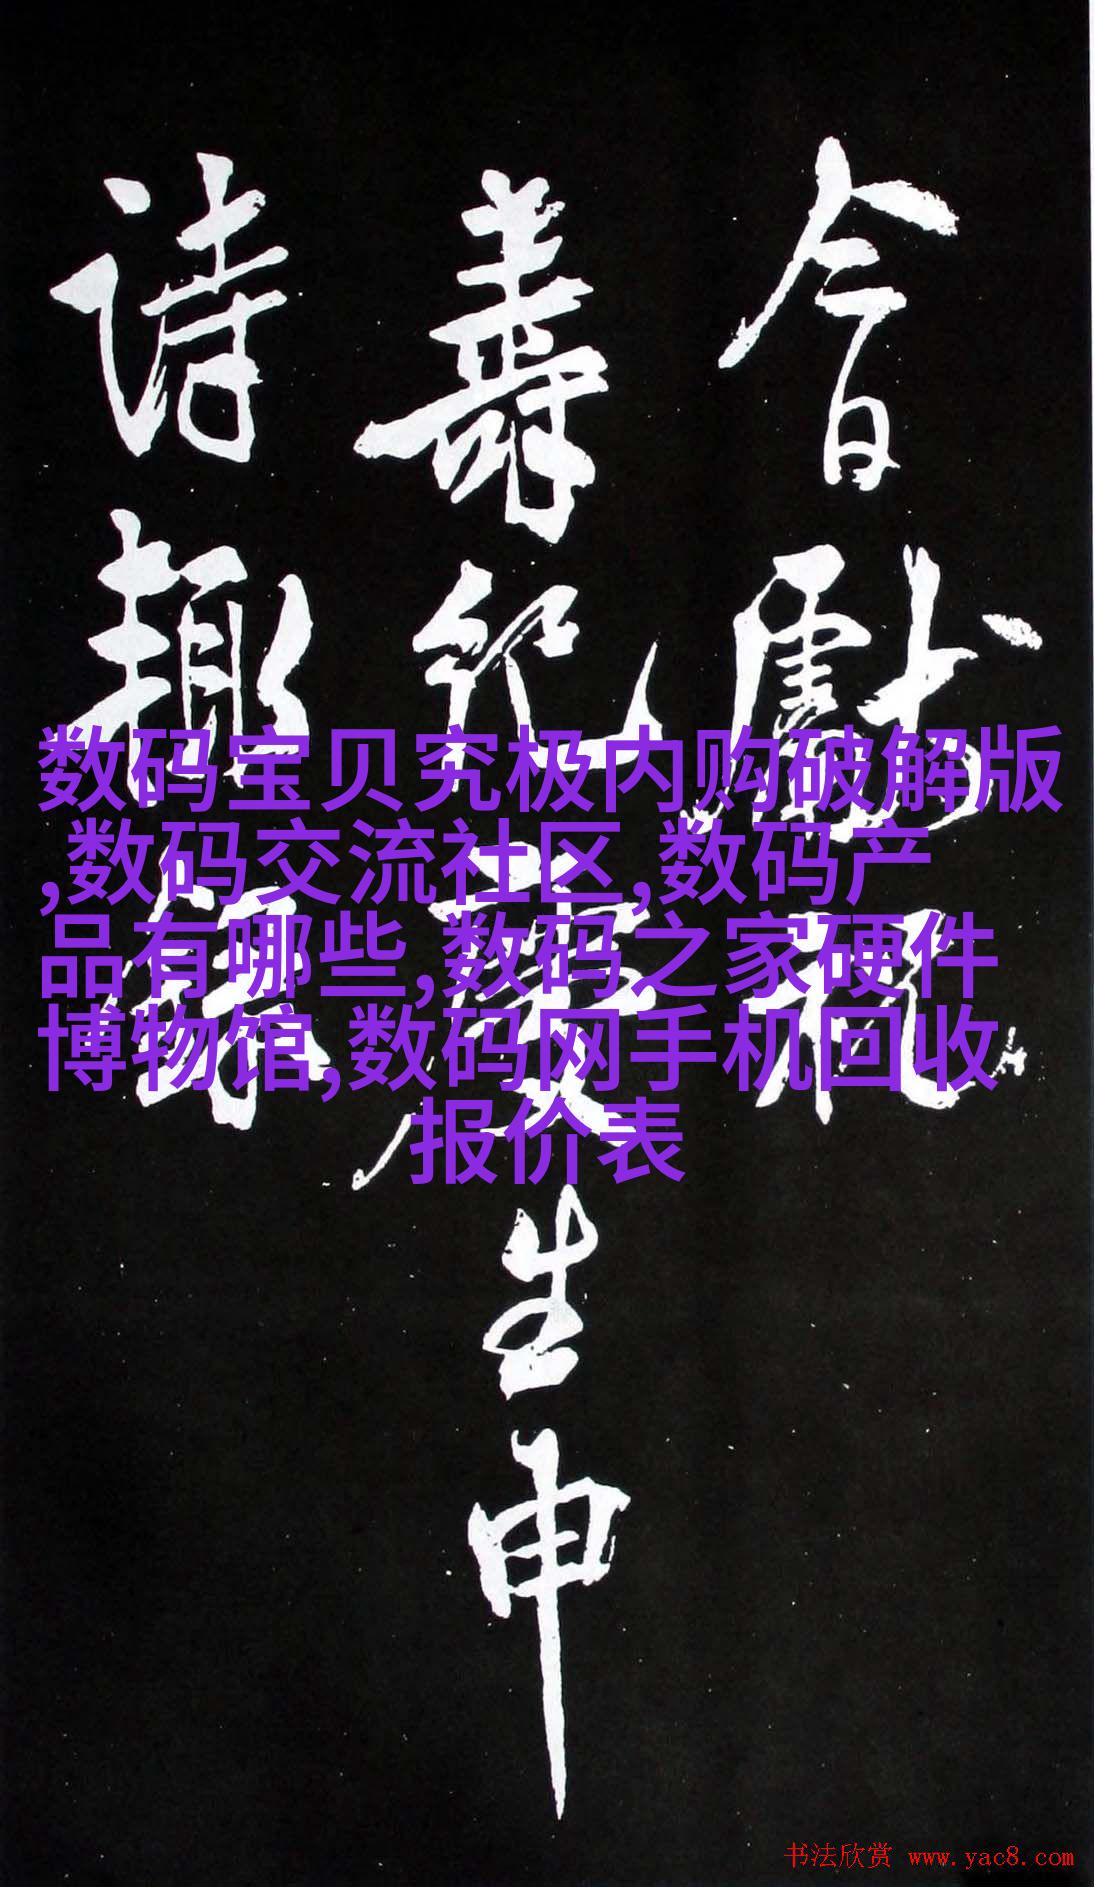 今日献祝
寿纪庆生申
诗趣馀
数码宝贝究极内购破解版
,数码交流社区,数码产
品有哪些,数码之家硬件
博物馆,数码网手机回收
报价表
书法欣赏 www.yac8.com